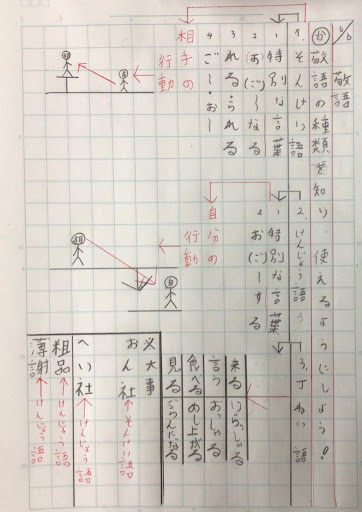 6/6
敬語
か 敬語の種類を知り、使えるようにしよう!
1.そんけい語
1 特別な言葉
2 お(ご)〜なる
3 れる・られる
4 ご〜・お〜
相手の
行動
相
自
2.けんじょう語
1 特別な言葉
2 お(ご)〜する
自分の
行動
相
自
3.丁ねい語
来る いらっしゃる
言う おっしゃる
食べる めし上がる
見る ごらんになる
大事
おん社 ← そんけい語
へい社 ← けんじょう語
粗品 ← けんじょう語
薄謝 ← けんじょう語